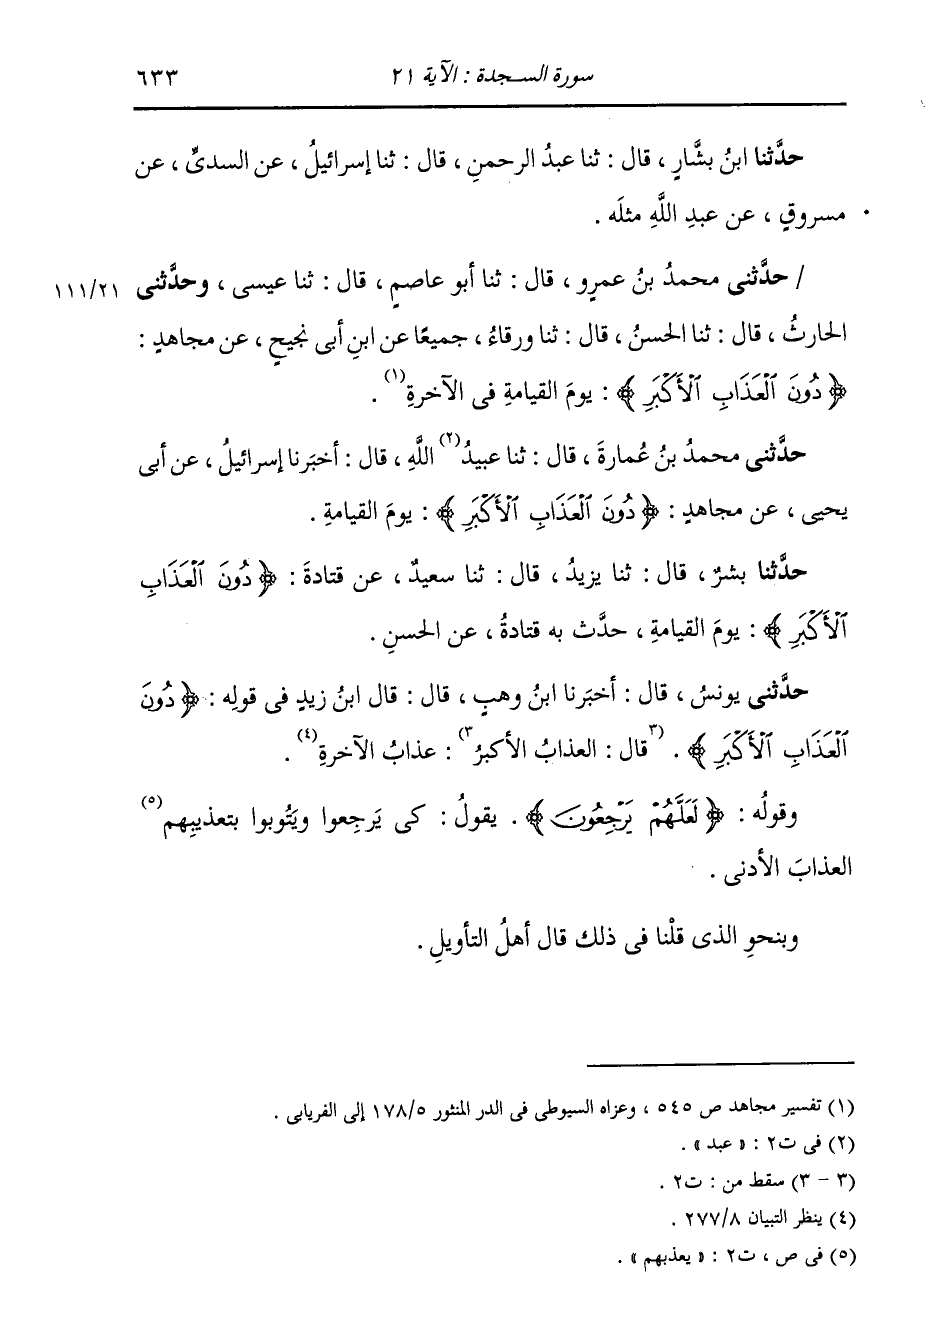 سورة السجدة : الآية ٢١ ٦٣٣
حدَّثنا ابنُ بشَّارٍ ، قال : ثنا عبدُ الرحمنِ ، قال : ثنا إسرائيلُ ، عن السدىِّ ، عن
مسروقٍ ، عن عبدِ اللَّهِ مثلَه .
/ حدَّثنى محمدُ بنُ عمرٍو ، قال : ثنا أبو عاصمٍ ، قال : ثنا عيسى ، وحدَّثنى ١١١/٢١
الحارثُ ، قال : ثنا الحسنُ ، قال : ثنا ورقاءُ ، جميعًا عن ابنِ أبى نجيحٍ ، عن مجاهدٍ :
﴿ دُونَ ٱلْعَذَابِ ٱلْأَكْبَرِ ﴾ : يومَ القيامةِ فى الآخرةِ(١) .
حدَّثنى محمدُ بنُ عُمارةَ ، قال : ثنا عبيدُ(٢) اللَّهِ ، قال : أخبَرنا إسرائيلُ ، عن أبى
يحيى ، عن مجاهدٍ : ﴿ دُونَ ٱلْعَذَابِ ٱلْأَكْبَرِ ﴾ : يومَ القيامةِ .
حدَّثنا بشرٌ ، قال : ثنا يزيدُ ، قال : ثنا سعيدٌ ، عن قتادةَ : ﴿ دُونَ ٱلْعَذَابِ
ٱلْأَكْبَرِ ﴾ : يومَ القيامةِ ، حدَّث به قتادةُ ، عن الحسنِ .
حدَّثنى يونسُ ، قال : أخبَرنا ابنُ وهبٍ ، قال : قال ابنُ زيدٍ فى قولِه : ﴿ دُونَ
ٱلْعَذَابِ ٱلْأَكْبَرِ ﴾ . (٣قال : العذابُ الأكبرُ٣) : عذابُ الآخرةِ(٤) .
وقولُه : ﴿ لَعَلَّهُمْ يَرْجِعُونَ ﴾ . يقولُ : كى يَرجِعوا ويَتُوبوا بتعذيبِهم(٥)
العذابَ الأدنى .
وبنحوِ الذى قلْنا فى ذلك قال أهلُ التأويلِ .
(١) تفسير مجاهد ص ٥٤٥ ، وعزاه السيوطى فى الدر المنثور ١٧٨/٥ إلى الفريابى .
(٢) فى ت٢ : « عبد » .
(٣ - ٣) سقط من : ت٢ .
(٤) ينظر التبيان ٢٧٧/٨ .
(٥) فى ص ، ت٢ : « يعذبهم » .